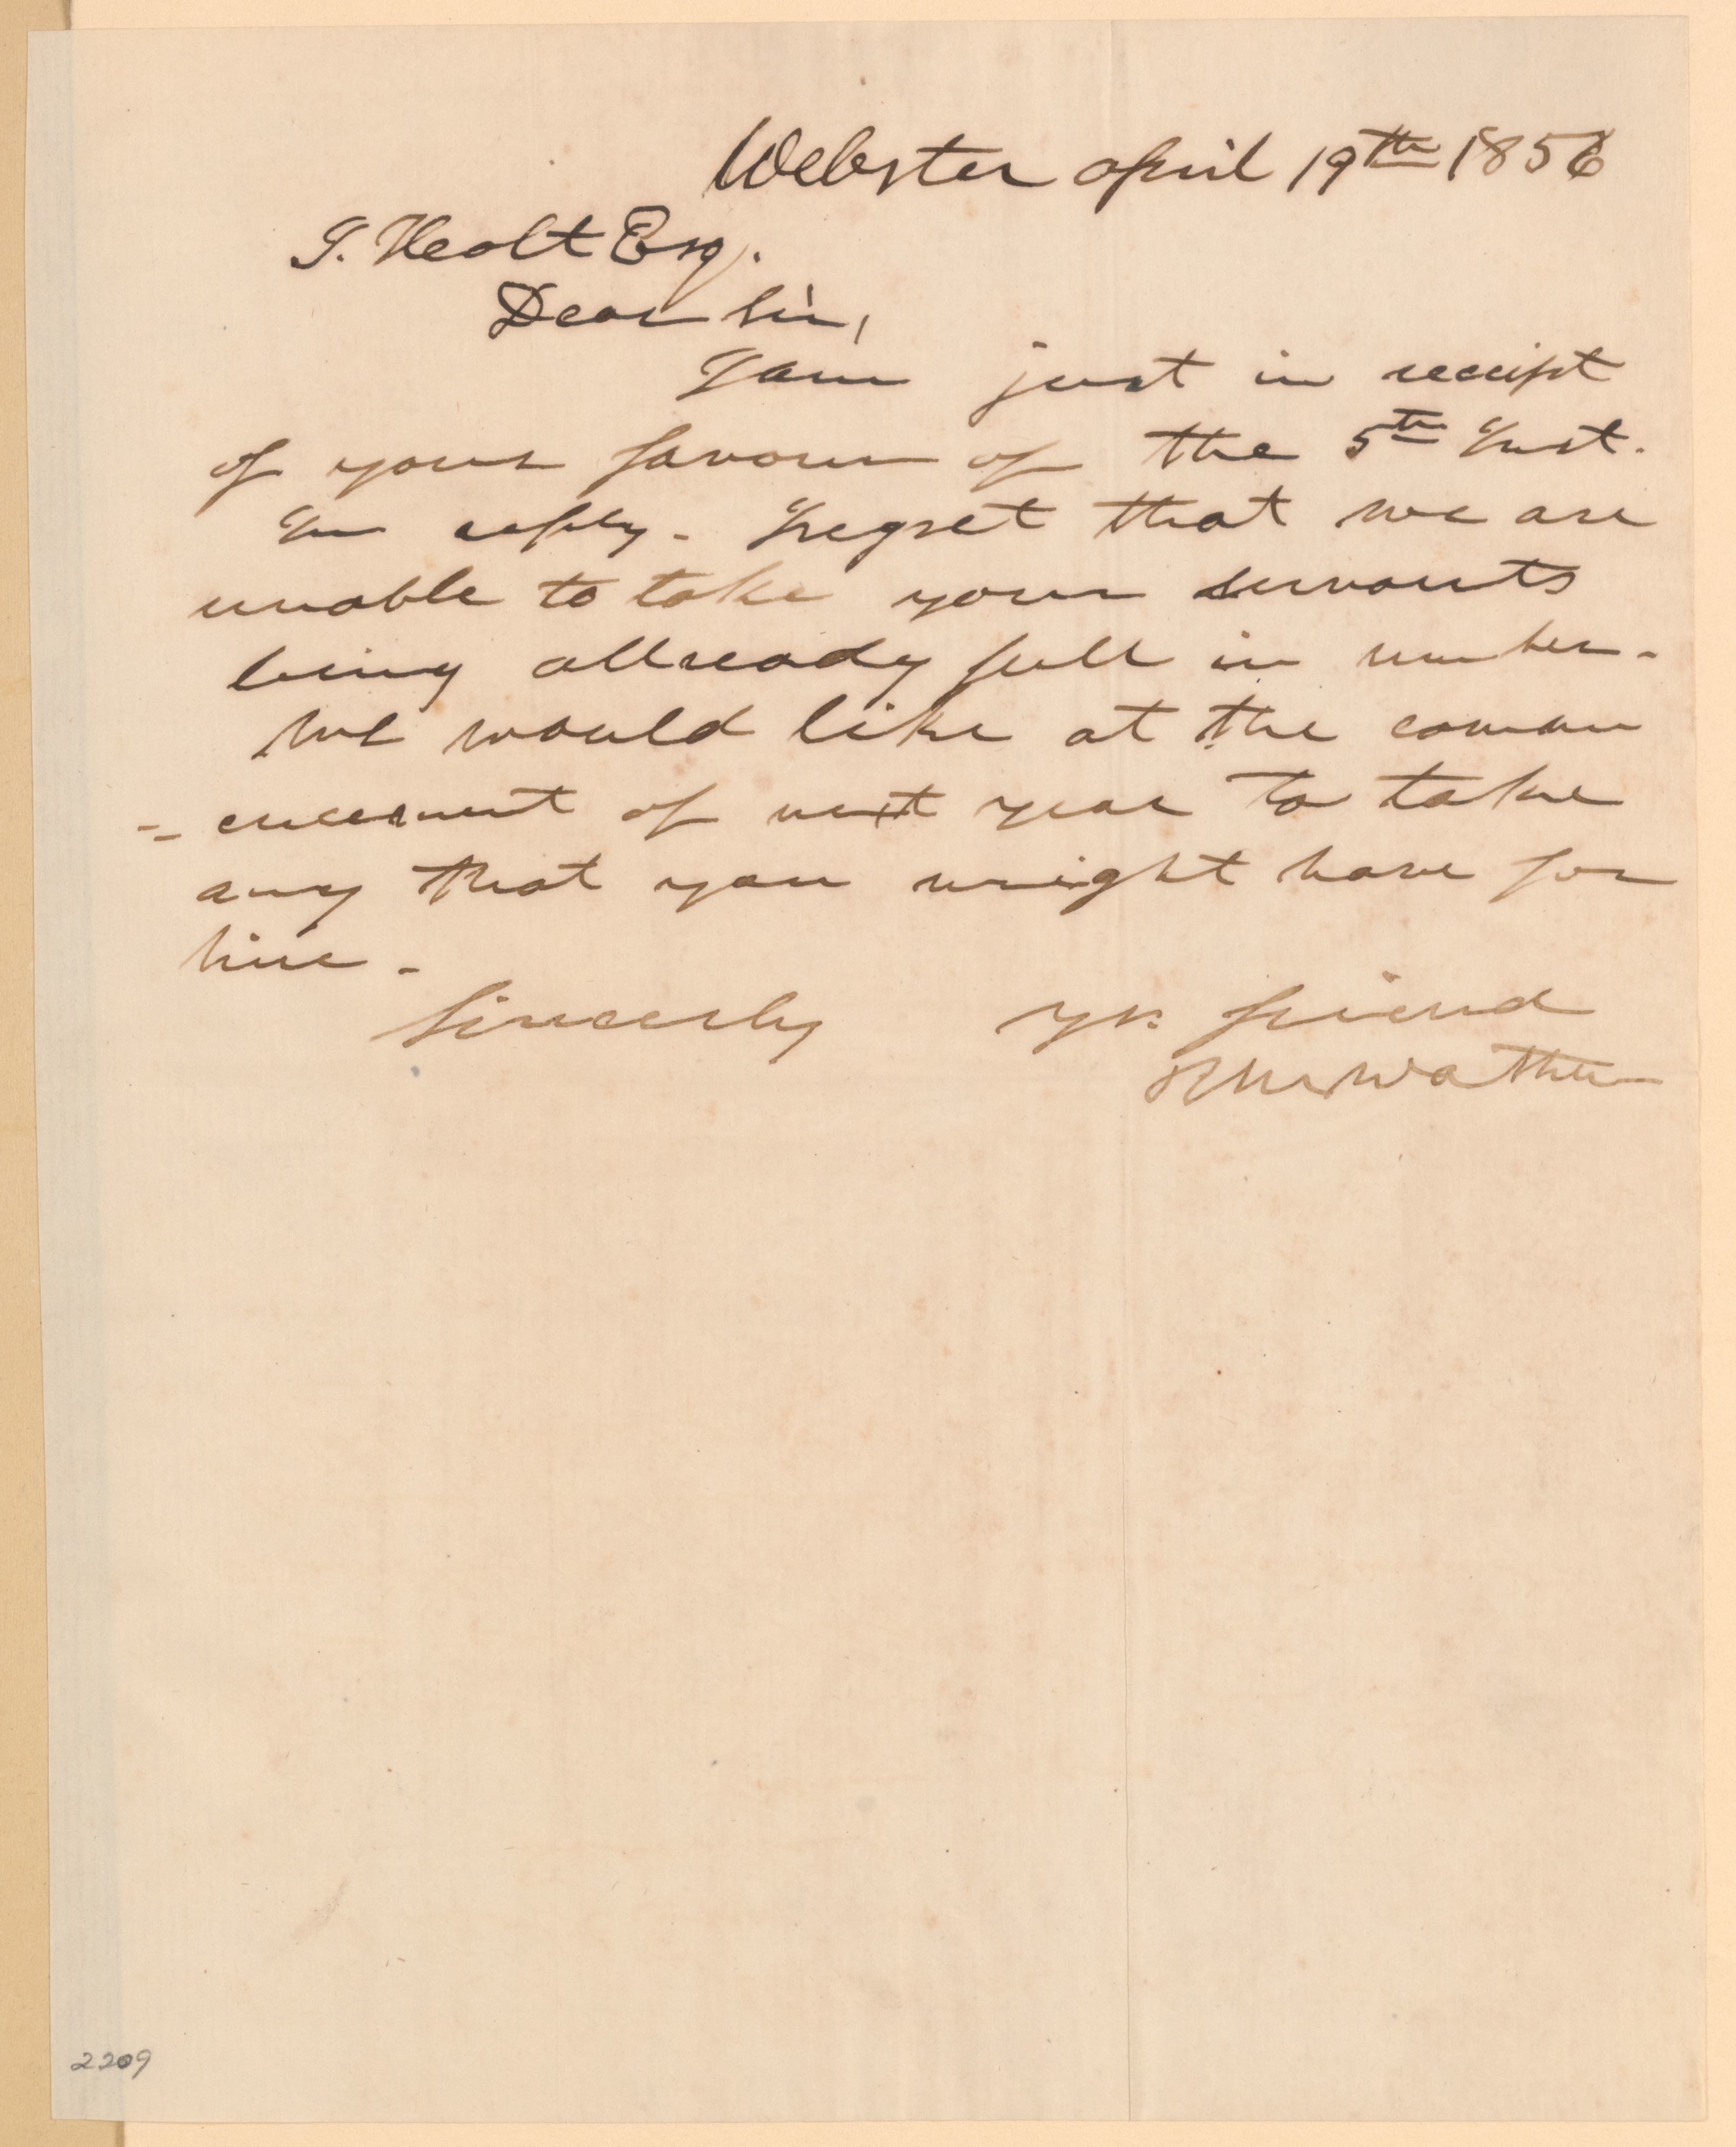 Webster april 19th 1856
Holt Esq.
Dear Sir,
I am just in receipt
of your favour of the 5th Inst.
In reply - I regret that we are
unable to take your servants
being allready full in number -
We would like at the comm
=encement of next year to take
any that you might have for
hire -
Sincerly yr. friend
Wathen
2209